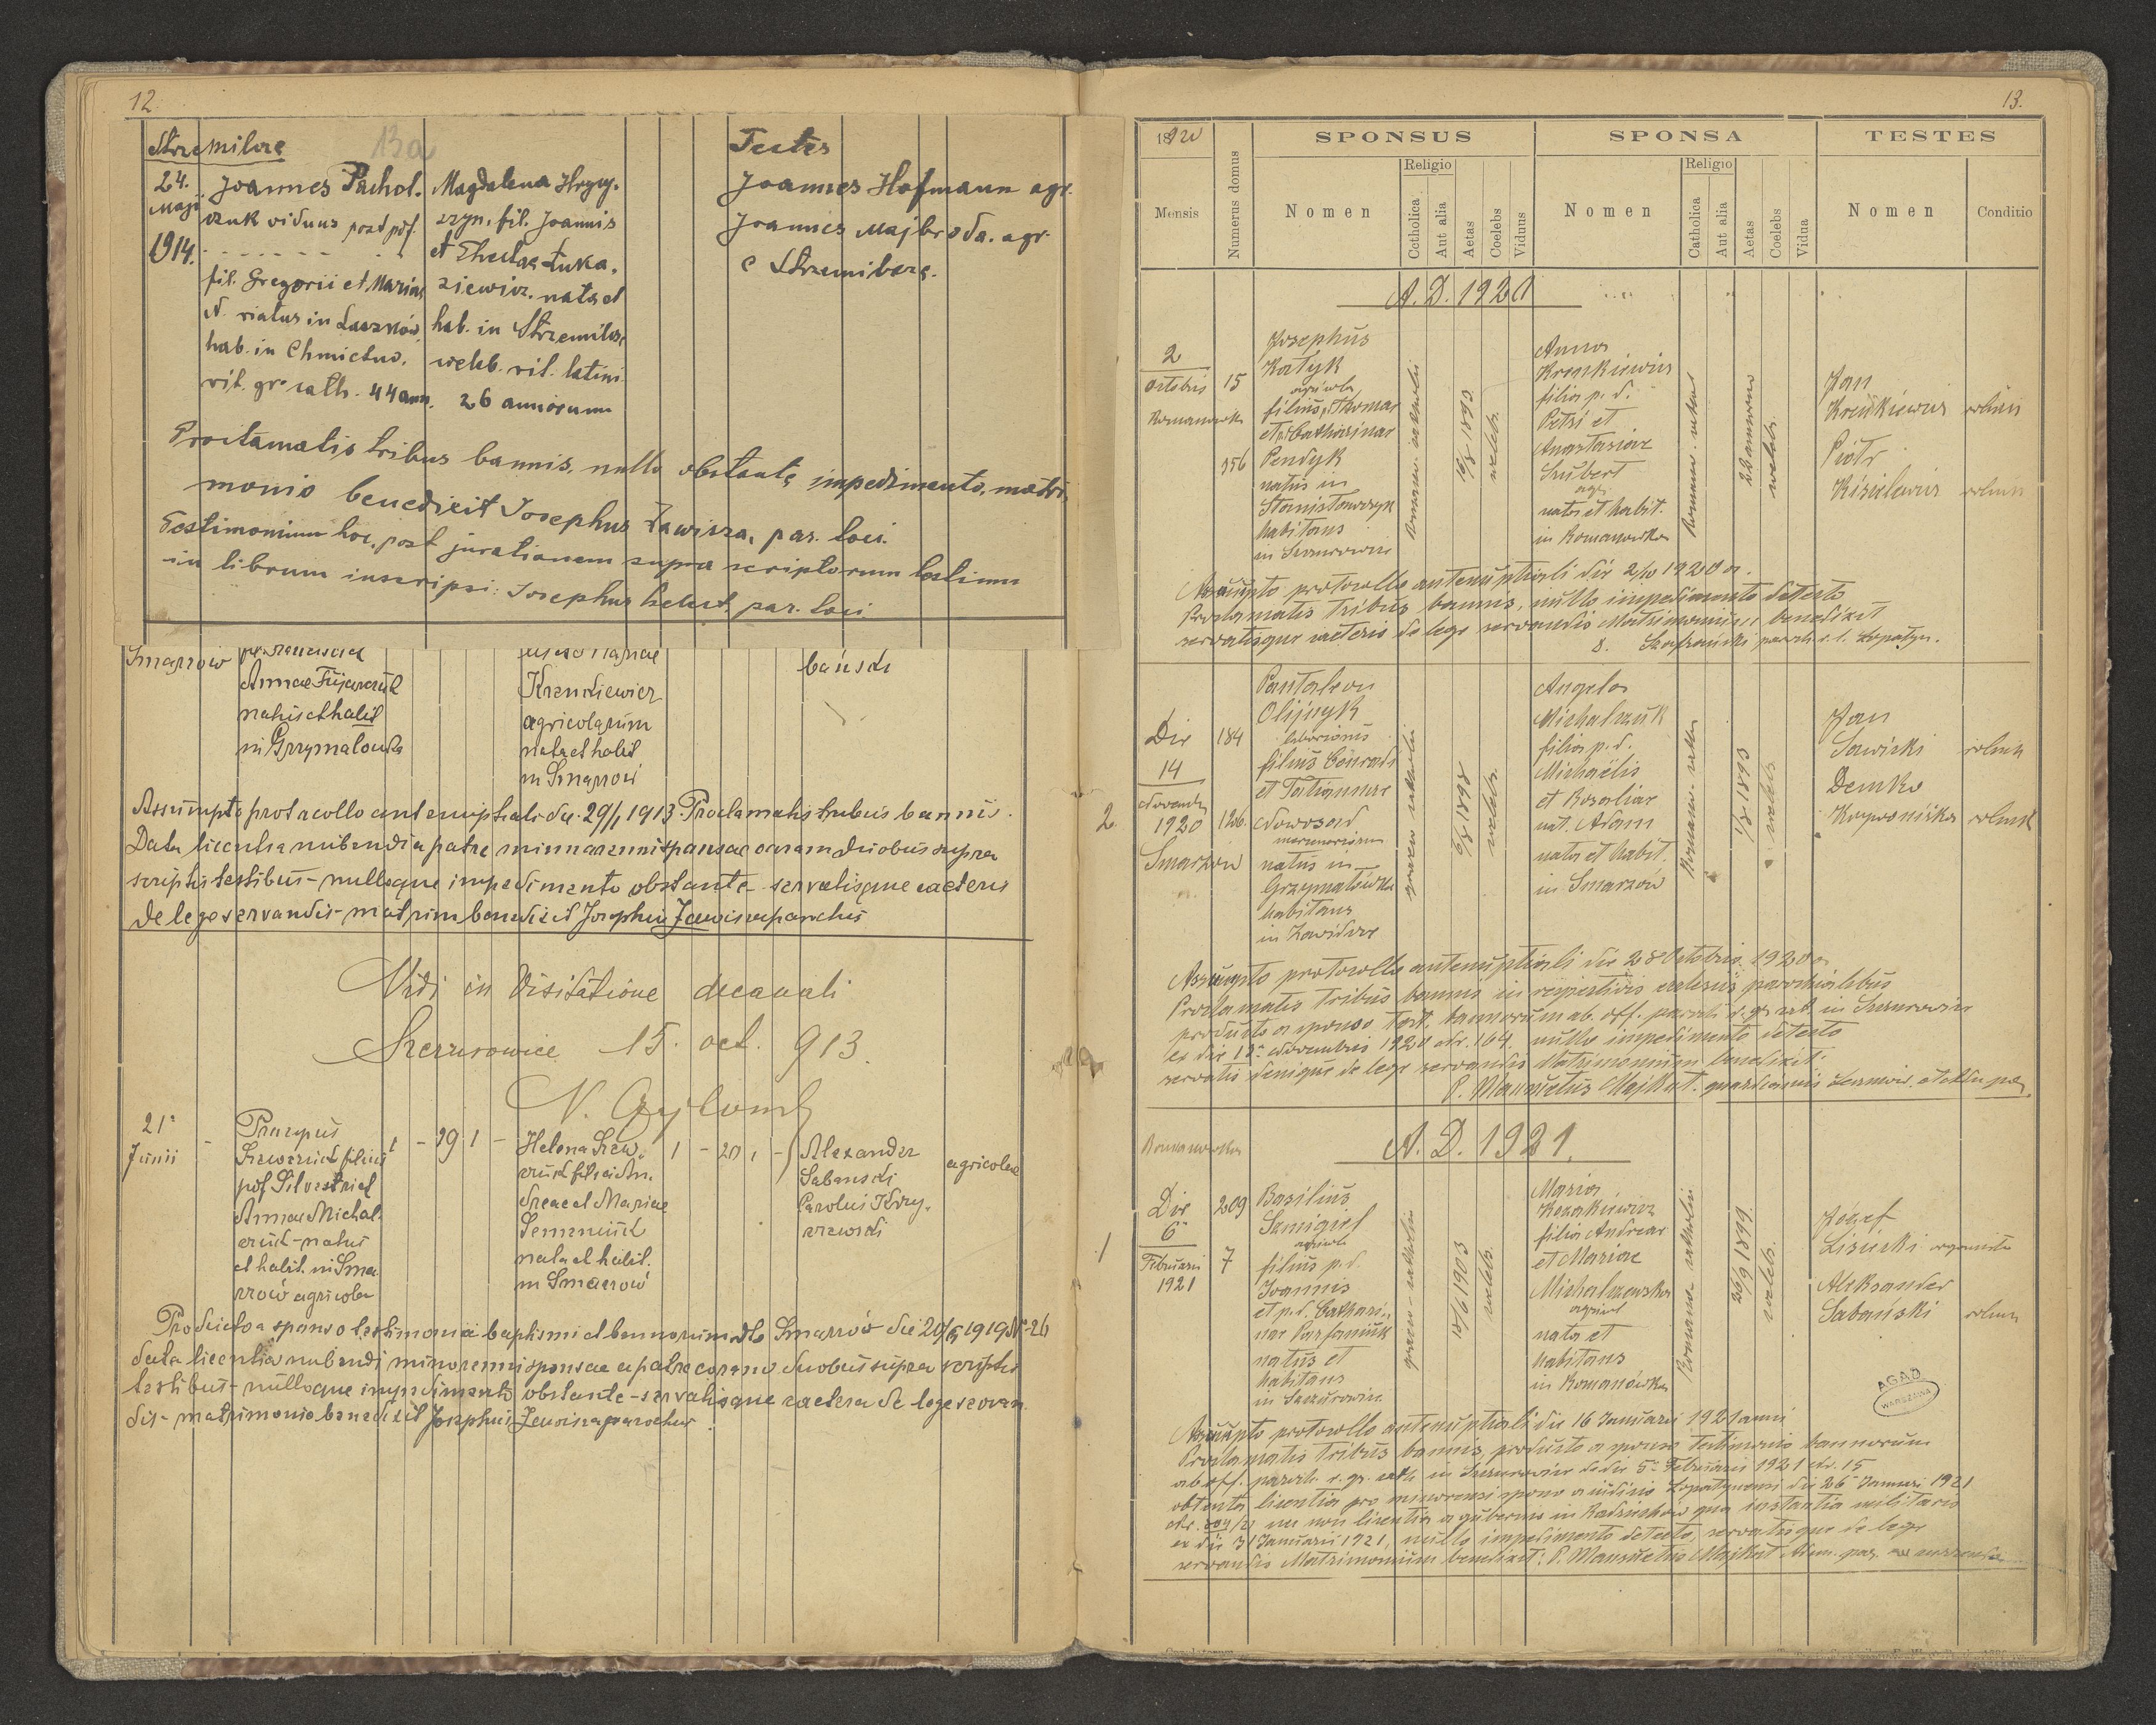 12
13a
Strzemilcze
Testes
24. Maji 1914.
Joannes Pachol-
czuk viduus post pdf.
fil. Gregorii et Mariae
N. natus in Laszków,
hab. in Chmielno,
rit. gr. cath. 44 ann.
Magdalena Hrycy-
szyn, fil. Joannis
et Theclae Łuka-
ziewicz, nata et
hab. in Strzemilcze
coeleb. rit. latini
26 annorum
Joannes Hofmann agr.
Joannes Majbroda. agr.
e Strzemilcze.
Proclamatis tribus bannis, nullo obstante impedimento, matri-
monio benedixit Josephus Zawisza, par. loci.
Testimonium hoc, post jurationem supra scriptorum testium
in librum inscripsi: Josephus par. loci.
Smarzow
Annae Fujarczuk
natus et habit
in Grzymałówka
Krenkiewicz
agricolarum
nata et habit
in Smarzow
bański
Assumpto protocollo antenuptiali die 29/1 1913. Proclamatis tribus bannis.
Data licentia nubendi a patre minorenni sponsae coram duobus supra
scriptis testibus - nulloque impedimento obstante - servatisque caeteris
de lege servandis - matrim benedixit Josephus Zawisza parochus
Vidi in Visitatione decanali
Szczurowice 15. oct. 913.
21a
Junii
Procopius
Szewczuk filius
pdf Silvestri et
Annae Michal-
czuk - natus
et habit. in Sma-
rzow agricola
1 - 29 1 -
Helena Szew-
czuk filia An-
dreae et Mariae
Semeniuk
nata et habit.
in Smarzow
1 - 20 1 -
Alexander
Sabanski
Carolus Krzy-
zewski
agricolae
Producto a sponso testimonio baptismi et bannorum dto Smarzów die 20/6 1919 Nr 26
data licentia nubendi minorenni sponsae a patre coram duobus supra scriptis
testibus - nulloque impedimento obstante - servatisque caetera de lege servan-
dis - matrimonio benedixit Josephus Zawisza parochus.
13.
1920
SPONSUS
SPONSA
TESTES
Mensis
Numerus domus
Nomen
Religio
Catholica
Aut alia
Aetas
Coelebs
Viduus
Nomen
Religio
Catholica
Aut alia
Aetas
Coelebs
Vidua
Nomen
Conditio
A. D. 1920
2
Octobris
Romanówka
15
356
Josephus
Katyk
agricola
filius Thomae
et Catharinae
Pendyk
natus in
Stanisławczyk
habitans
in Szczurowice
coelebs.
Anna
Krenkiewicz
filia p. d.
Petri et
Anastasiae
Szubert
agr.
nata et habit.
in Romanówka
22 annorum
coelebs.
Jan
Krenkiewicz rolnik
Piotr
Kisielewicz rolnik
Assumpto protocollo antenuptiali die 2/10 1920 a.
Proclamatis tribus bannis, nullo impedimento detecto
servatisque caeteris de lege servandis Matrimonium benedixit
2.
Die
14
Novembr
1920
Smarzow
184
126.
Pantaleon
Olijnyk
filius Conradi
et Tatiannae
Nowosad
natus in
Grzymałówka
habitans
in Zawidcze
coelebs.
Angela
Michalczuk
filia p. d.
Michaelis
et Rosaliae
nat. Adam
nata et habit.
in Smarzów
coelebs.
Jan
Sawicki rolnik
Demko
rolnik
Assumpto protocollo antenuptiali die 28 Octobris 1920 a.
Proclamatis tribus bannis in respectivis ecclesiis parochialibus
producto a sponso test. bannorum ab off. paroch r. gr. cat. in Szczurowice
ex die 13a Novembris 1920 Nr. 164. nullo impedimento detecto
servatis denique de lege servandis Matrimonium benedixit:
P. Mansuetus Majkut.
Romanówka
A. D. 1921.
1
Die
6a
Februarii
1921
209
7
Basilius
Szmigiel
agricola
filius p. d.
Joannis
et p. d. Cathari-
nae Parfaniuk
natus et
habitans
in Szczurowice
coelebs.
Maria
Kozakiewicz
filia Andreae
et Mariae
Michalczewska
agricol
nata et
habitans
in Romanówka
26/9 1899
coelebs.
Józef
Lisiecki organista
Aleksander
Sabański rolnik
AGAD
WARSZAWA
Assumpto protocollo antenuptiali die 16 Januarii 1921 anni
Proclamatis tribus bannis, producto a sponso testimonio bannorum
ab off. paroch. r. gr. cath. in Szczurowice de die 5a Februarii 1921 Nr. 15
obtenta licentia pro minorensi sponso a iudicio Lopatynensi die 26 Januarii 1921
Nr. 204/21 nec non licentia a gubernio in Radziechów qua instantia militaris
ex die 31 Januarii 1921, nullo impedimento detecto, servatisque de lege
servandis Matrimonium benedixit: P. Mansuetus Majkut Adm. par.